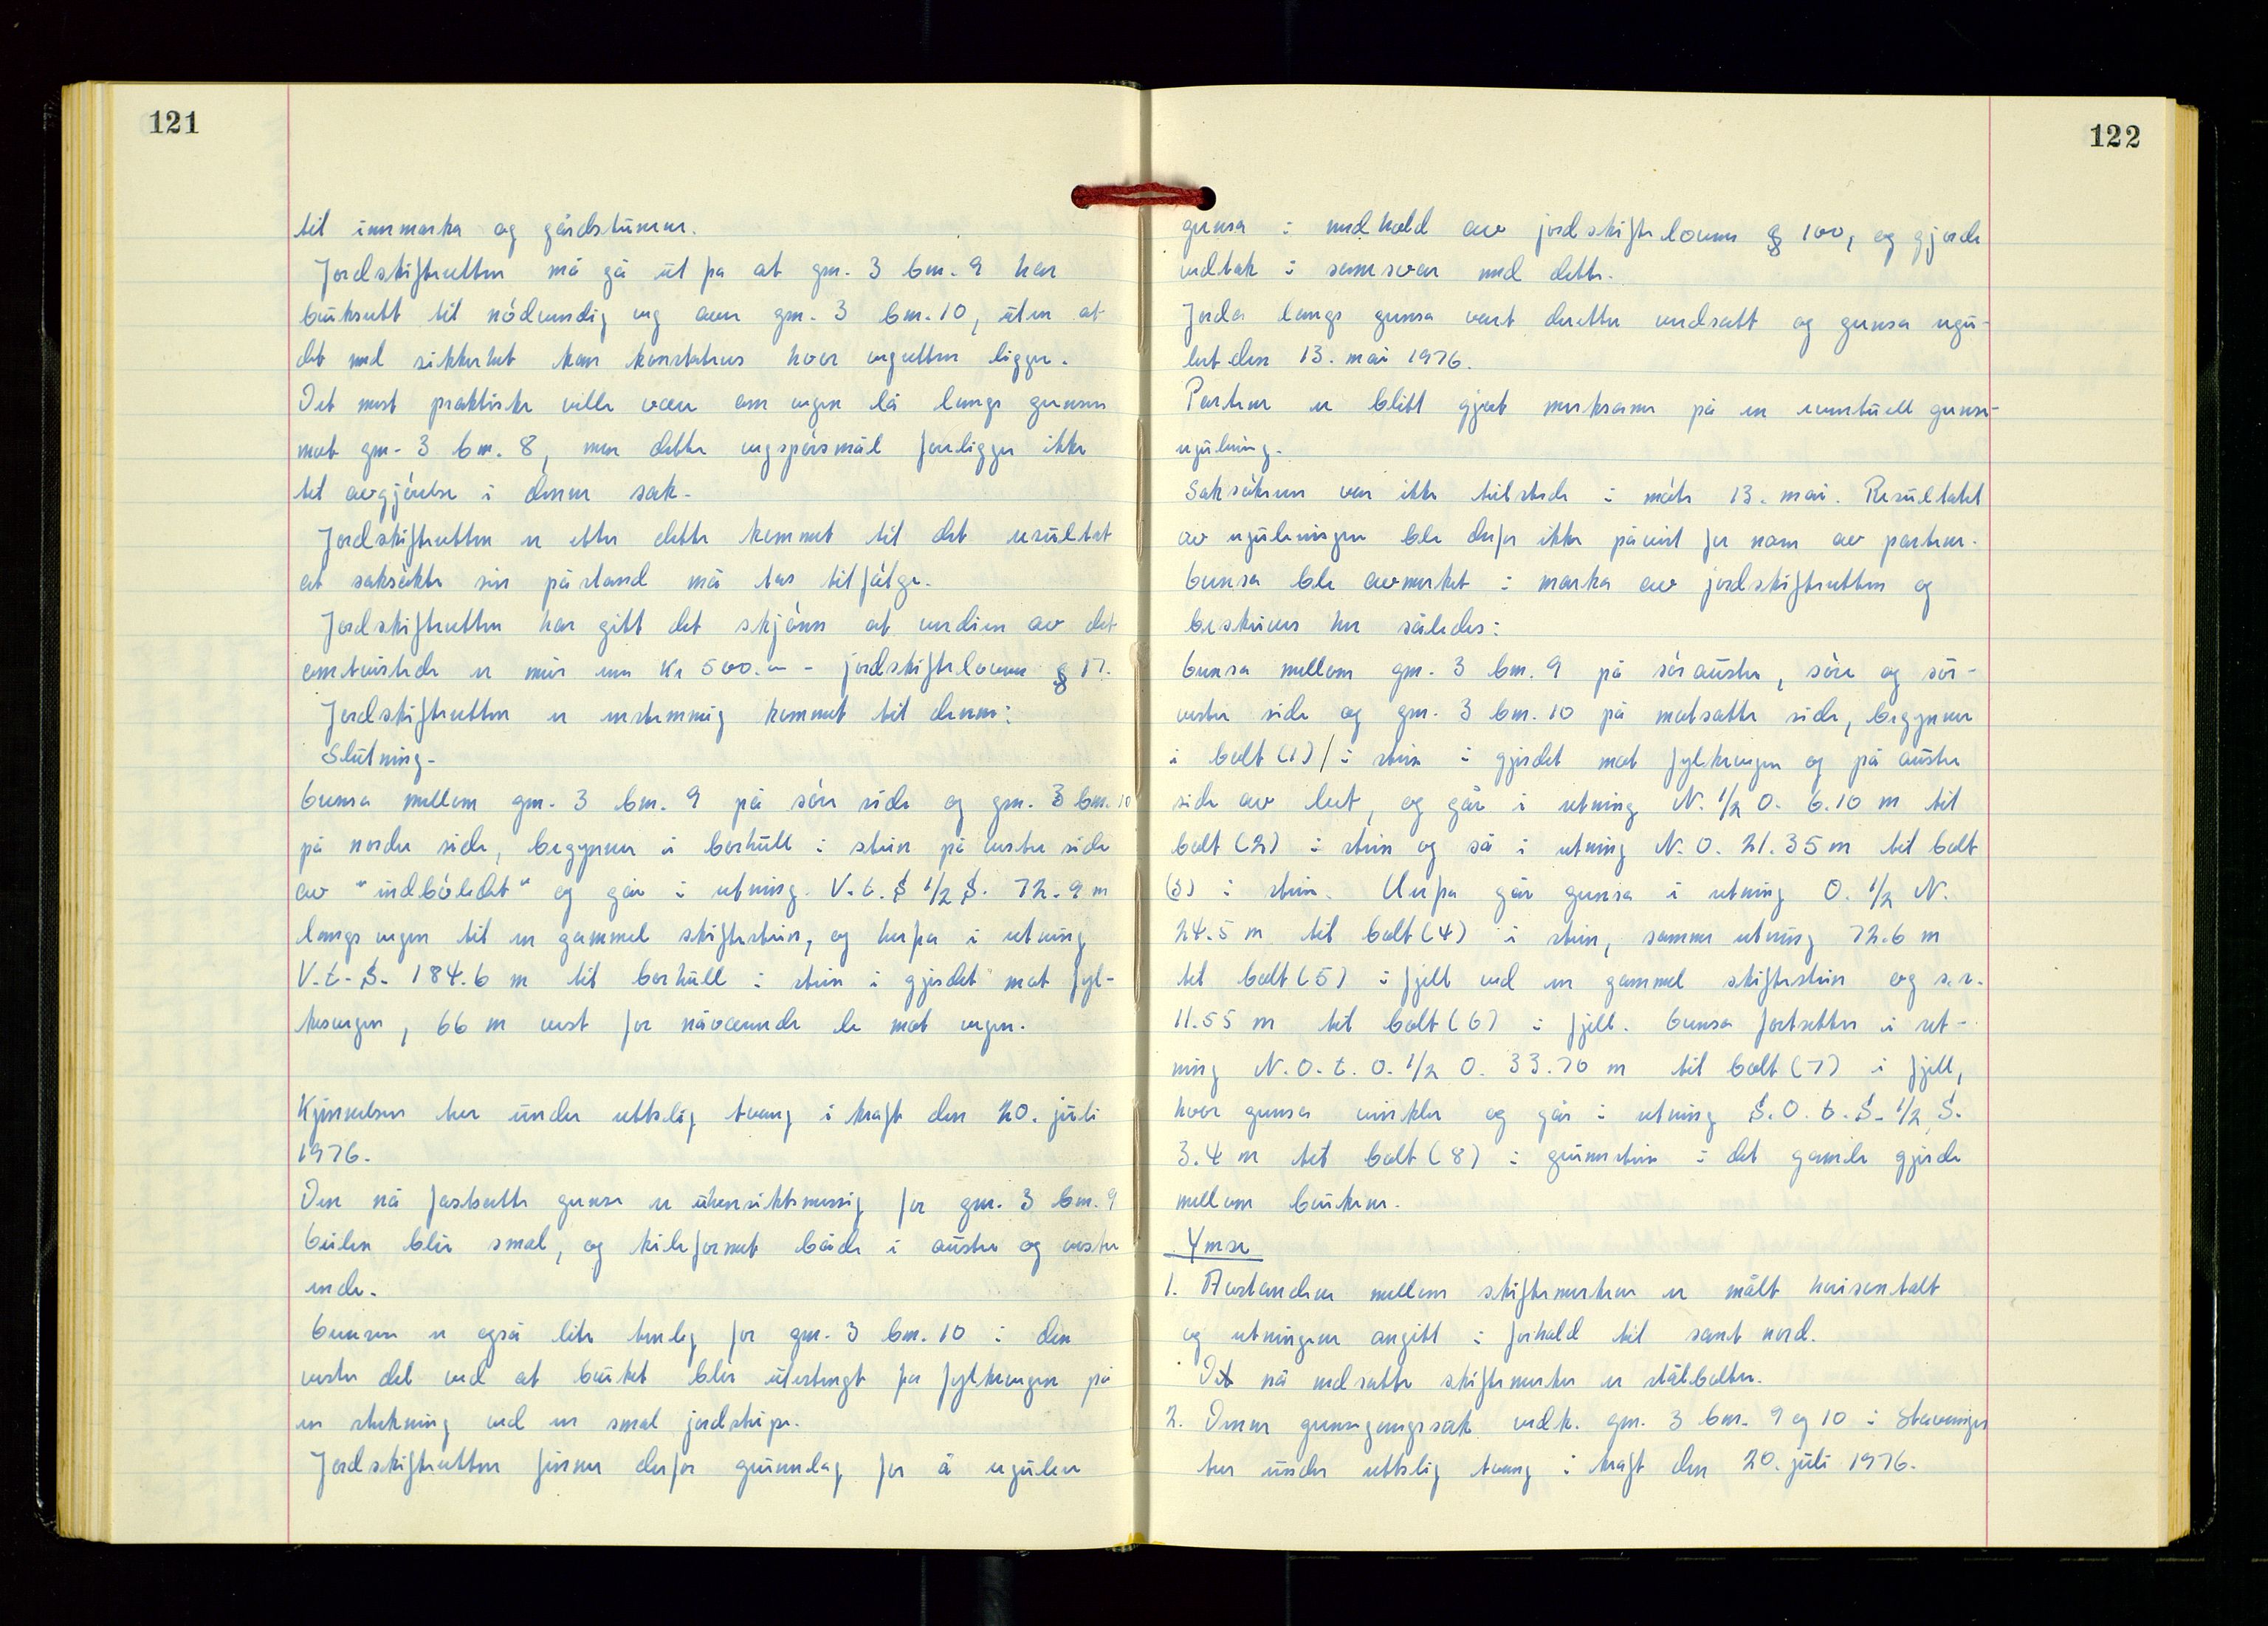 121
til innmarka og gårdstunene.
Jordskifteretten må gå ut fra at gnr. 3 bnr. 9 har
bruksrett til nödvendig veg over gnr. 3 bnr. 10, uten at
det med sikkerhet kan konstateres hvor vegretten ligger.
Det mest praktiske ville være om vegen lå langs grensen
mot gnr. 3 bnr. 8, men dette vegspörsmål foreligger ikke
til avgjörelse i denne sak.
Jordskifteretten er etter dette kommet til det resultat
at saksökte sin påstand må tas til fölge.
Jordskifteretten har gitt det skjönn at verdien av det
omtvistede er mer enn kr 500.- - jordskifteloven § 17.
Jordskifteretten er enstemmig kommet til denne:
Slutning.
Grensa mellom gnr. 3 bnr. 9 på söre side og gnr. 3 bnr. 10
på nordre side, begynner i borhull i stein på vestre side
av "eidbölet" og går i retning V.t.S 1/2 S. 72.9 m
langs vegen til en gammel skiftestein, og herfra i retning
V.t.S. 184.6 m til borhull i stein i gjerdet mot fyl-
kesvegen, 66 m vest for nåværende le mot vegen.
Kjennelsen trer under rettslig tvang i kraft den 20. juli
1976.
Den nå fastsatte grense er uhensiktsmessig for gnr. 3 bnr. 9
Teilen blir smal, og kileformet både i austre og vestre
ende.
Grensen er også lite tenleg for gnr. 3 bnr. 10 i den
vestre del ved at bruket blir utestengt fra fylkesvegen på
en strekning ved en smal jordstripe.
Jordskifteretten finner derfor grunnlag for å regulere
122
grensa i medhold av jordskifteloven § 100, og gjorde
vedtak i samsvar med dette.
Jorda langs grensa vart deretter verdsatt og grensa regu-
lert den 13. mai 1976.
Partene er blitt gjort merksame på en eventuell grense-
regulering.
Saksökeren var ikke tilstede i möte 13. mai. Resultatet
av reguleringen ble derfor ikke påvist for noen av partene.
Grensa ble avmerket i marka av jordskifteretten og
beskrives her således:
Grensa mellom gnr. 3 bnr. 9 på söraustre, söre og sör-
vestre side og gnr. 3 bnr. 10 på motsatte side, begynner
i bolt (1) / i stein i gjerdet mot fylkesvegen og på austre
side av leet, og går i retning N. 1/2 O. 6.10 m til
bolt (2) i stein og så i retning N.O. 21.35 m til bolt
(3) i stein. Herfra går grensa i retning O. 1/2 N.
24.5 m til bolt (4) i stein, samme retning 72.6 m
til bolt (5) i fjell ved en gammel skiftestein og s.r.
11.55 m til bolt (6) i fjell. Grensa fortsetter i ret-
ning N.O.t.O. 1/2 O. 33.70 m til bolt (7) i fjell,
hvor grensa vinkler og går i retning S.O.t.S. 1/2 S.
3.4 m til bolt (8) i grunnstein i det gamle gjerde
mellom brukene.
Ymse
1. Avstandene mellom skiftemerkene er målt horisontalt
og retningene angitt i forhold til sant nord.
De nå nedsatte skiftemerker er stålbolter.
2. Denne grensegangssak vedk. gnr. 3 bnr. 9 og 10 i Stavanger
trer under rettslig tvang i kraft den 20. juli 1976.